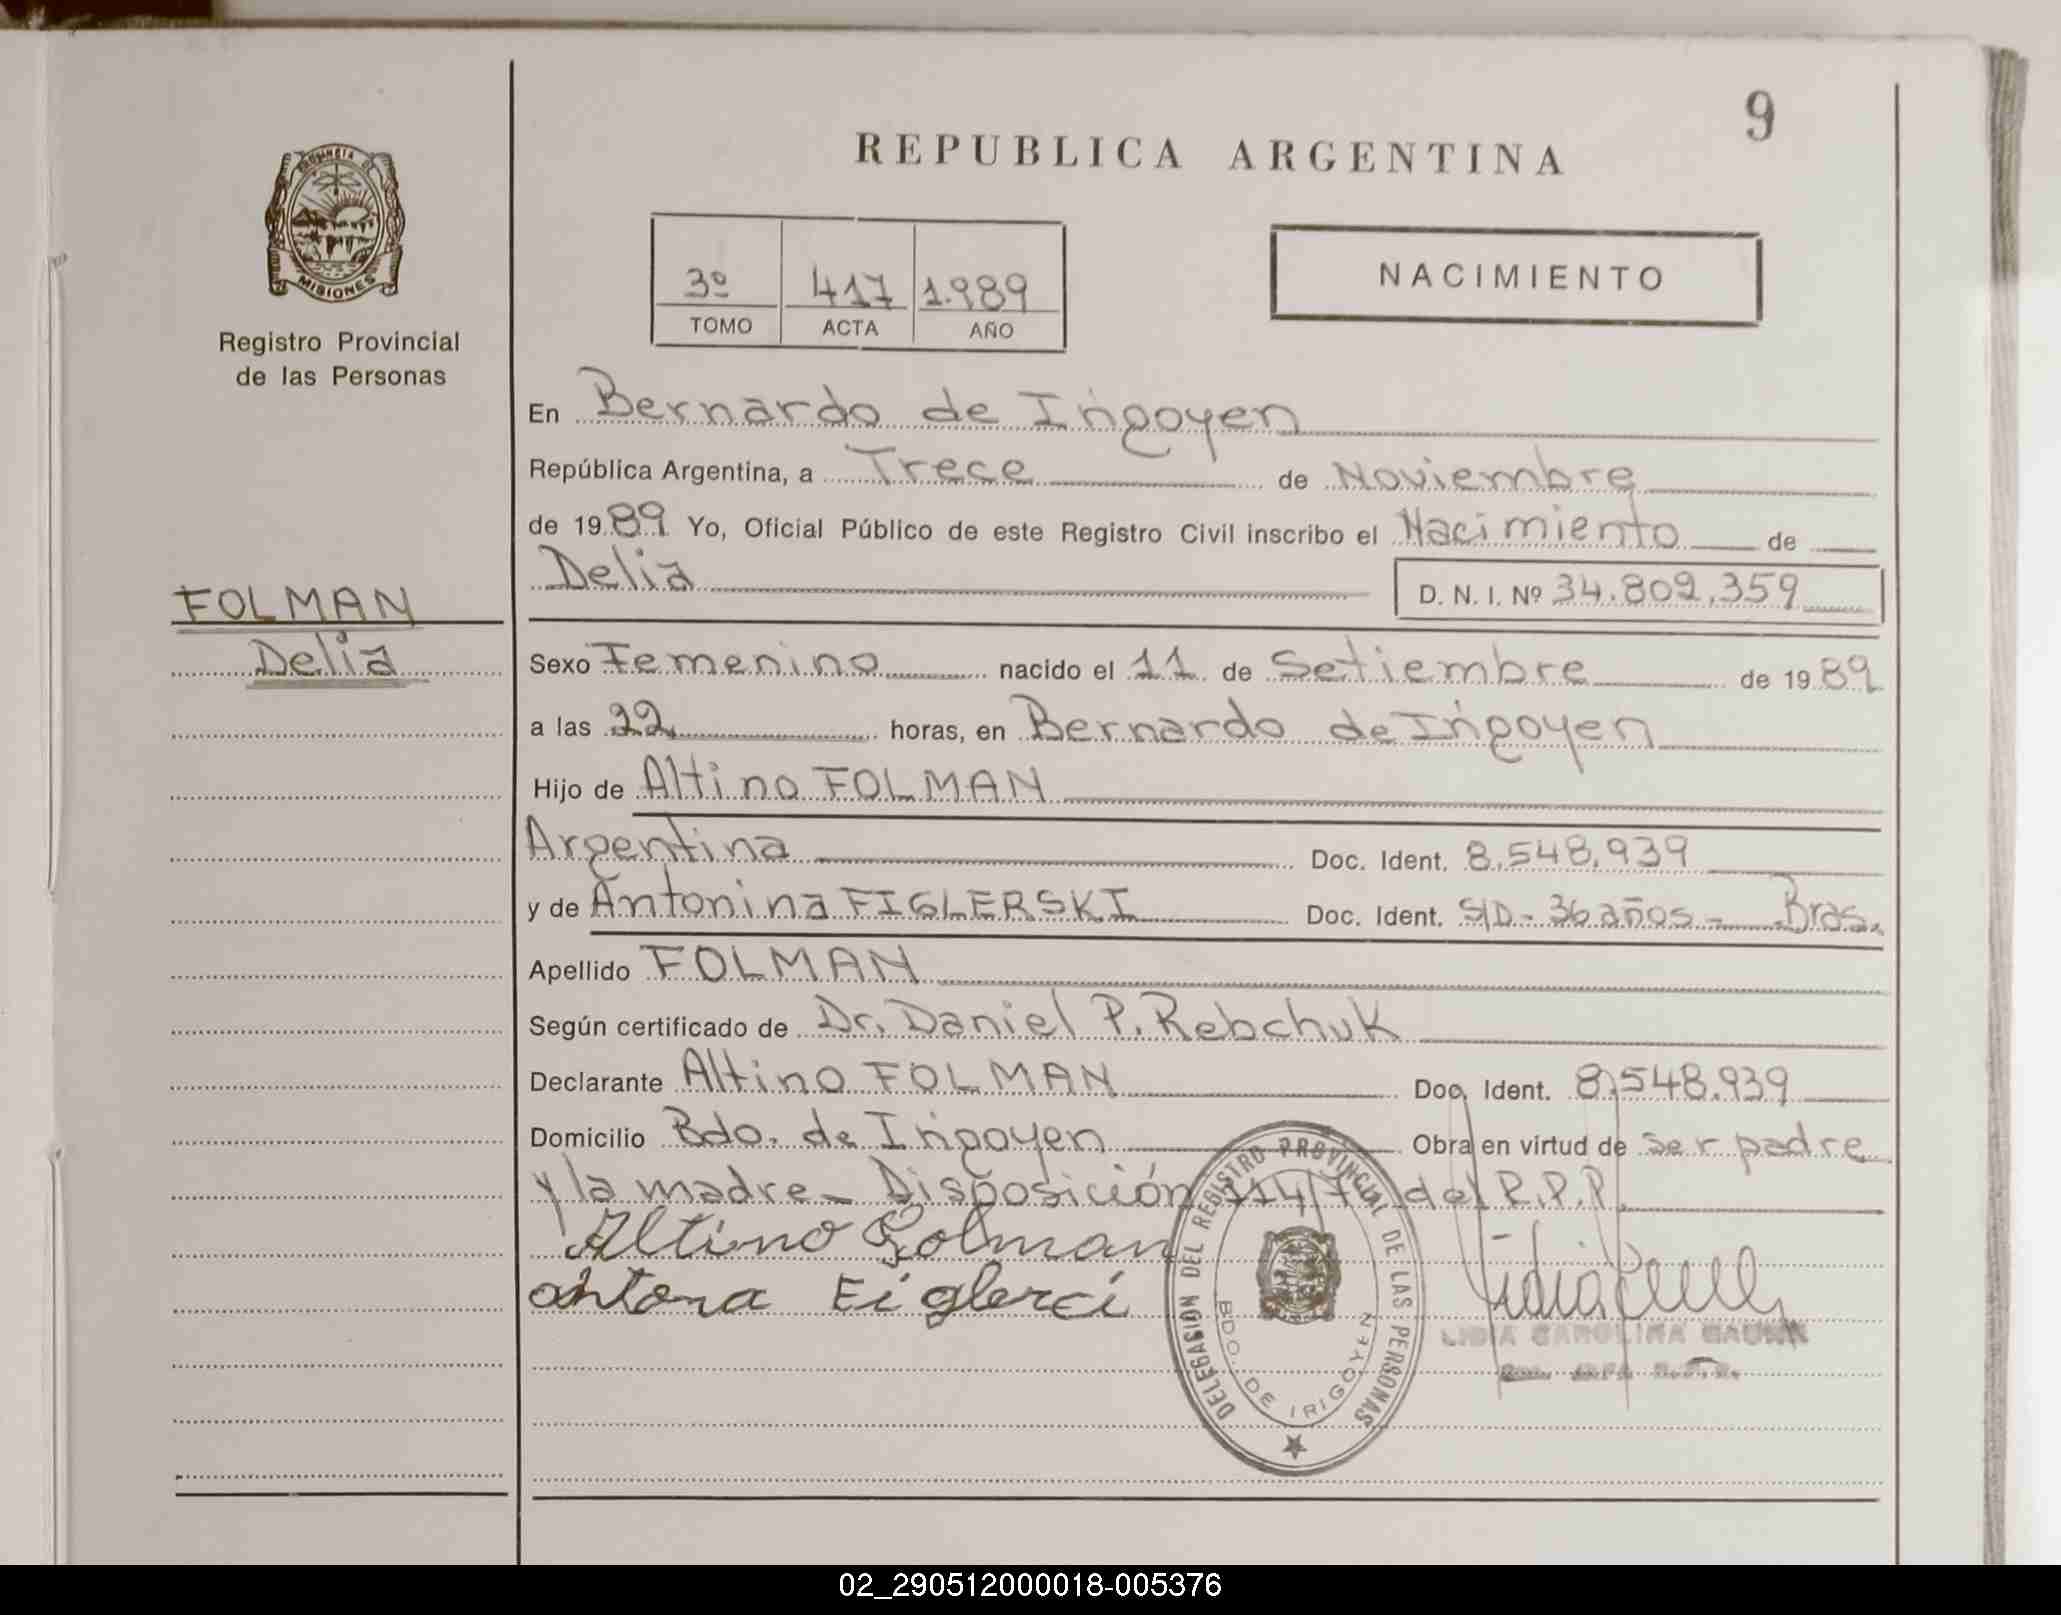 9
REPUBLICA ARGENTINA
PROVINCIA DE
MISIONES
Registro Provincial
de las Personas
3º 417 1.989
TOMO ACTA AÑO
NACIMIENTO
En Bernardo de Irigoyen
República Argentina, a Trece de Noviembre
de 1989 Yo, Oficial Público de este Registro Civil inscribo el Nacimiento de
Delia D. N. I. Nº 34.809.359
FOLMAN
Delia
Sexo Femenino nacido el 11 de Setiembre de 1989
a las 22 horas, en Bernardo de Irigoyen
Hijo de Altino FOLMAN
Argentina Doc. Ident. 8.548.939
y de Antonina FIGLERSKI Doc. Ident. S/D - 36 años - Bras.
Apellido FOLMAN
Según certificado de Dr. Daniel P. Rebchuk
Declarante Altino FOLMAN Doc. Ident. 8.548.939
Domicilio Bdo. de Irigoyen Obra en virtud de ser padre
y la madre - Disposición del R.P.P.
Altino Folman
antona Eiglerci
DELEGASION DEL REGISTRO PROVINCIAL DE LAS PERSONAS
BDO. DE IRIGOYEN
LIDIA CAROLINA
02_290512000018-005376